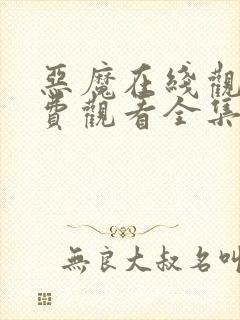 惡魔在綫觀
費觀看全集
無良大叔名叫